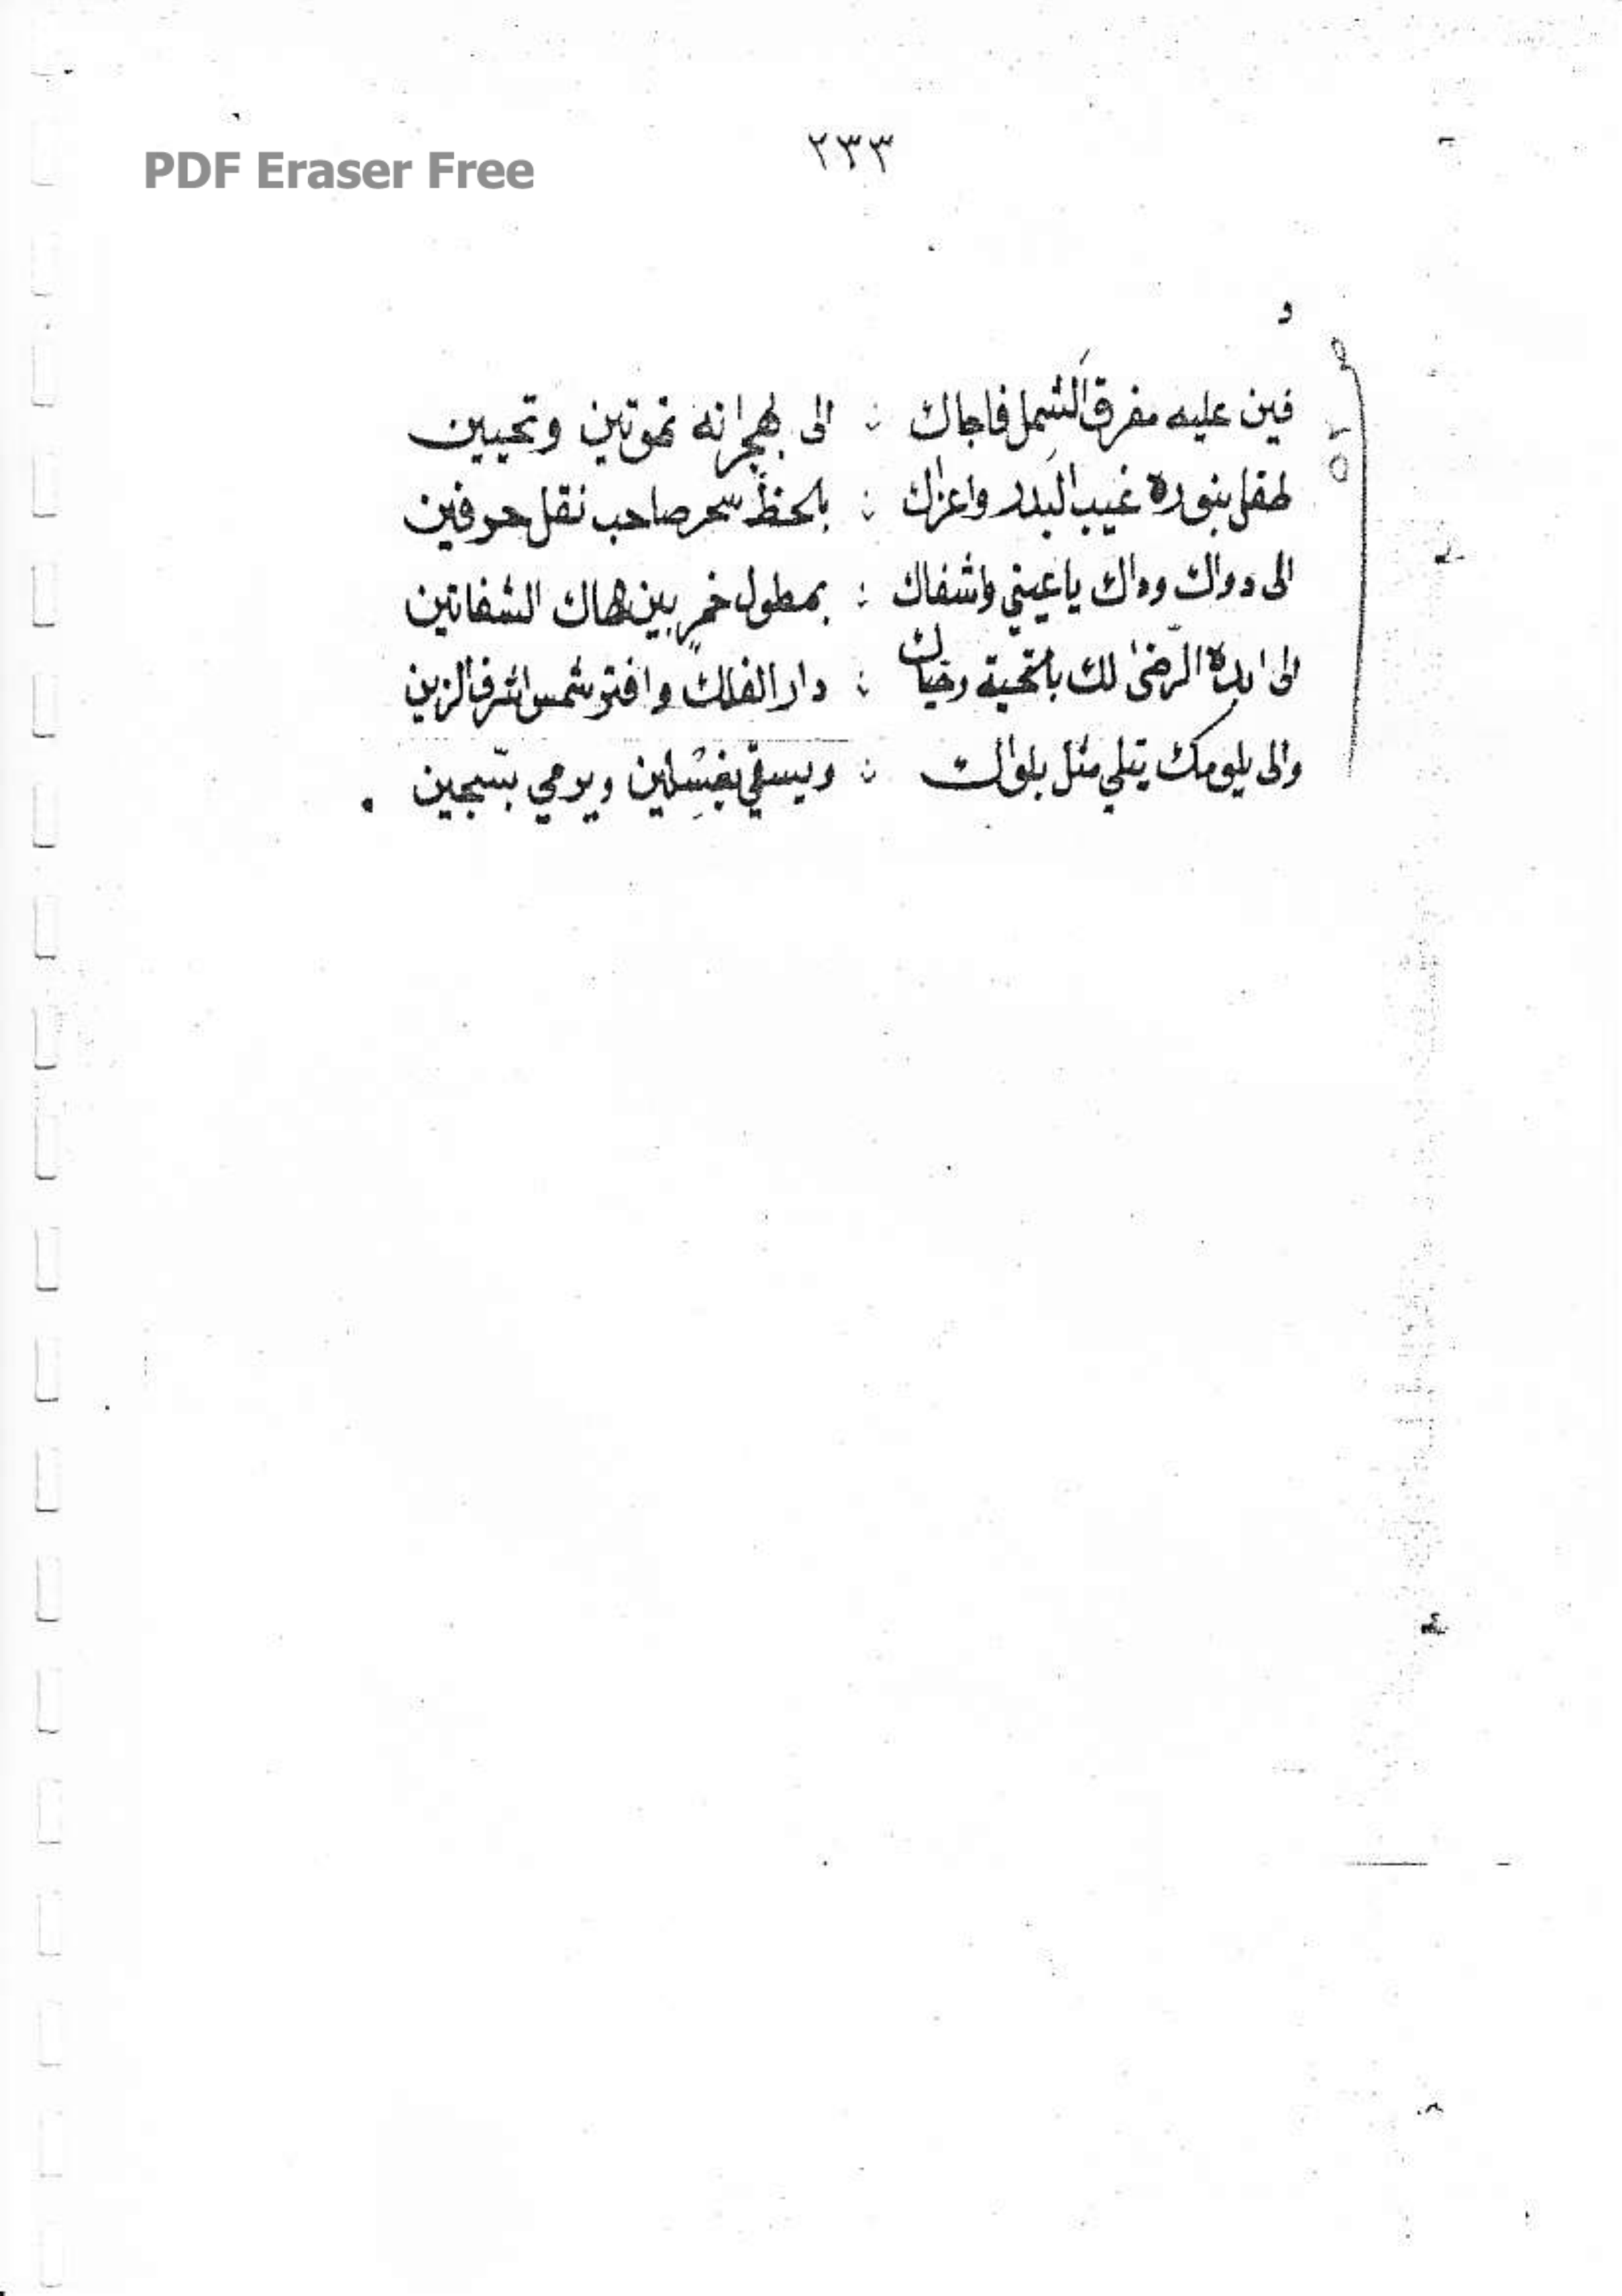 PDF Eraser Free
٢٣٣
و
فين عليه مفرق الشمل فاجاك : الى بهجرانه تموتين وتحيين
طفل بنوره غيب البدر واعزاك : بلحظ سحر صاحب نقل حرفين
الى دواك وداك ياعيني واشفاك : بمطول خمر بين هاك الشفاتين
الى الرضى لك بالتحية وحياك : دار الفلك وافتر شمس اشرف الزين
والى يلومك يتلي مثل بلواك : ويسقي بغسلين ويرمي بسجين .